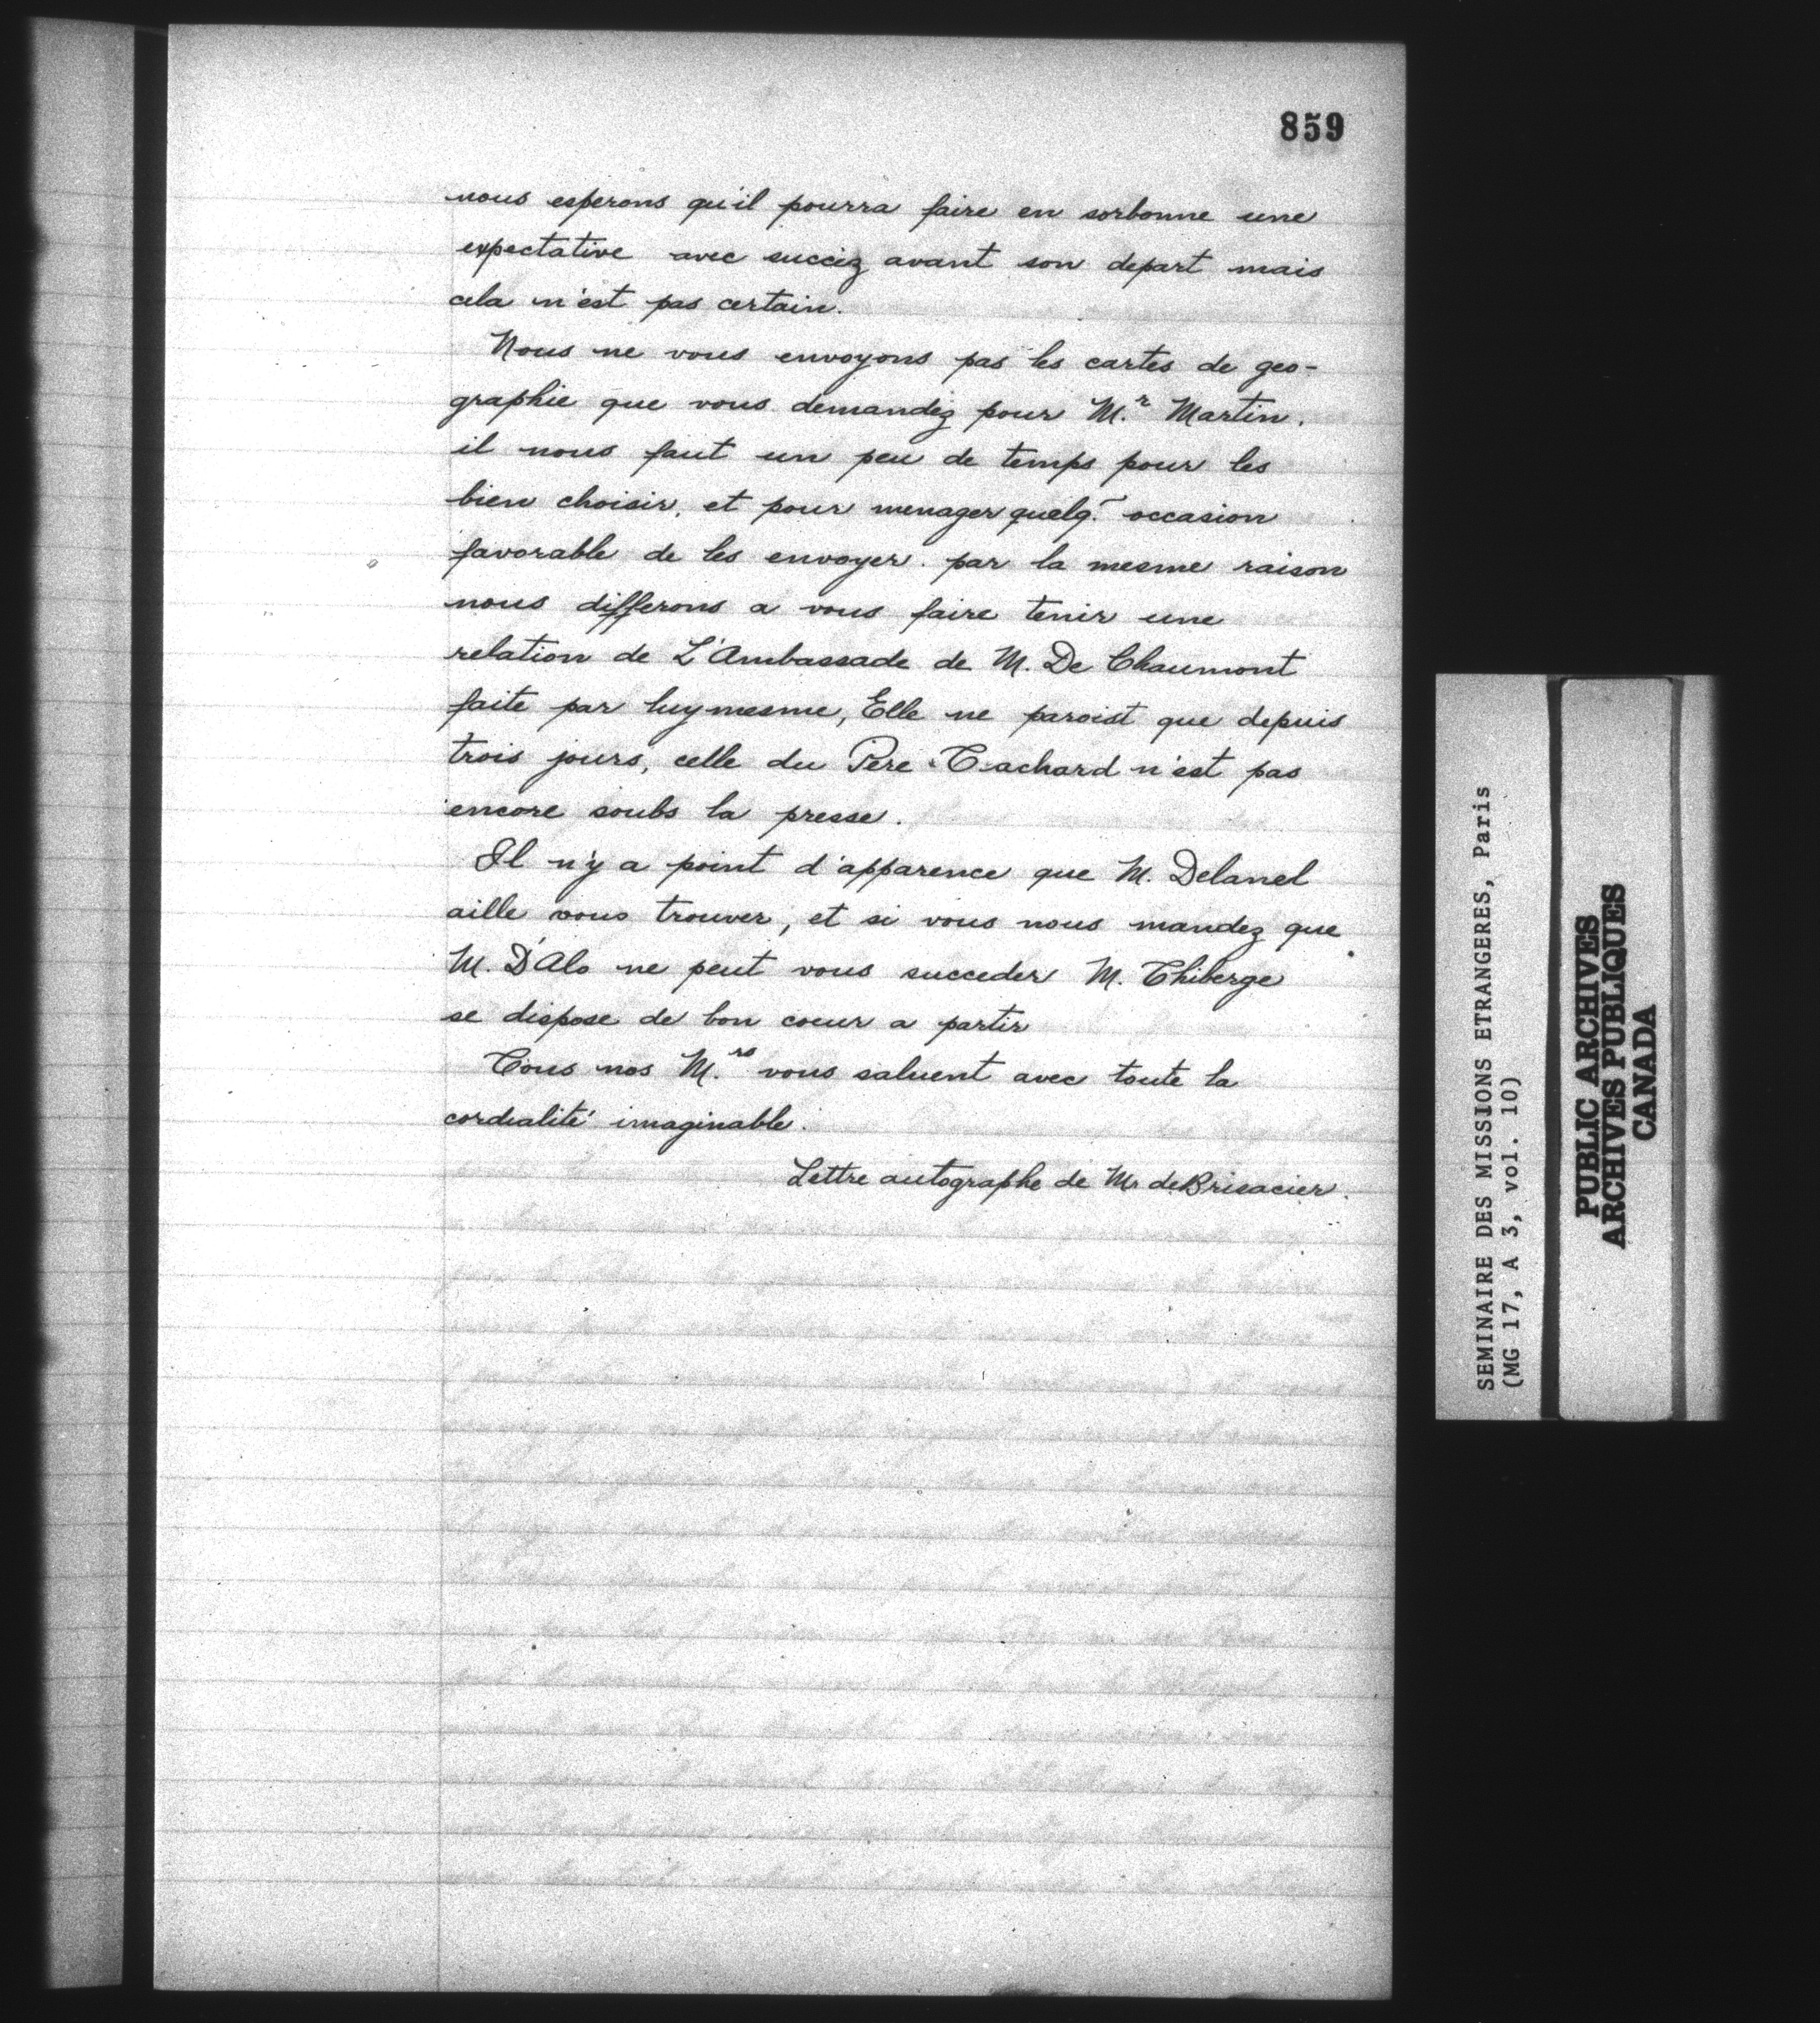 859
nous esperons qu'il pourra faire en sorbonne une
expectative avec succéz avant son depart mais
cela n'est pas certain.
Nous ne vous envoyons pas les cartes de geo-
graphie que vous demandéz pour M.r Martin.
il nous faut un peu de temps pour les
bien choisir. et pour menager quelq.~ occasion
favorable de les envoyer. par la mesme raison
nous differons a vous faire tenir une
relation de L'Ambassade de M. De Chaumont
faite par luy mesme, Elle ne paroist que depuis
trois jours, celle du Père Tachard n'est pas
encore soubs la presse.
Il n'y a point d'apparence que M. Delanel
aille vous trouver, et si vous nous mandez que
M. D'Alo ne peut vous succeder M. Thiberge
se dispose de bon coeur a partir
Tous nos M.rs vous saluent avec toute la
cordialité imaginable.
Lettre autographe de Mr de Brisacier.
SEMINAIRE DES MISSIONS ETRANGERES, Paris
(MG 17, A 3, vol. 10)
PUBLIC ARCHIVES
ARCHIVES PUBLIQUES
CANADA